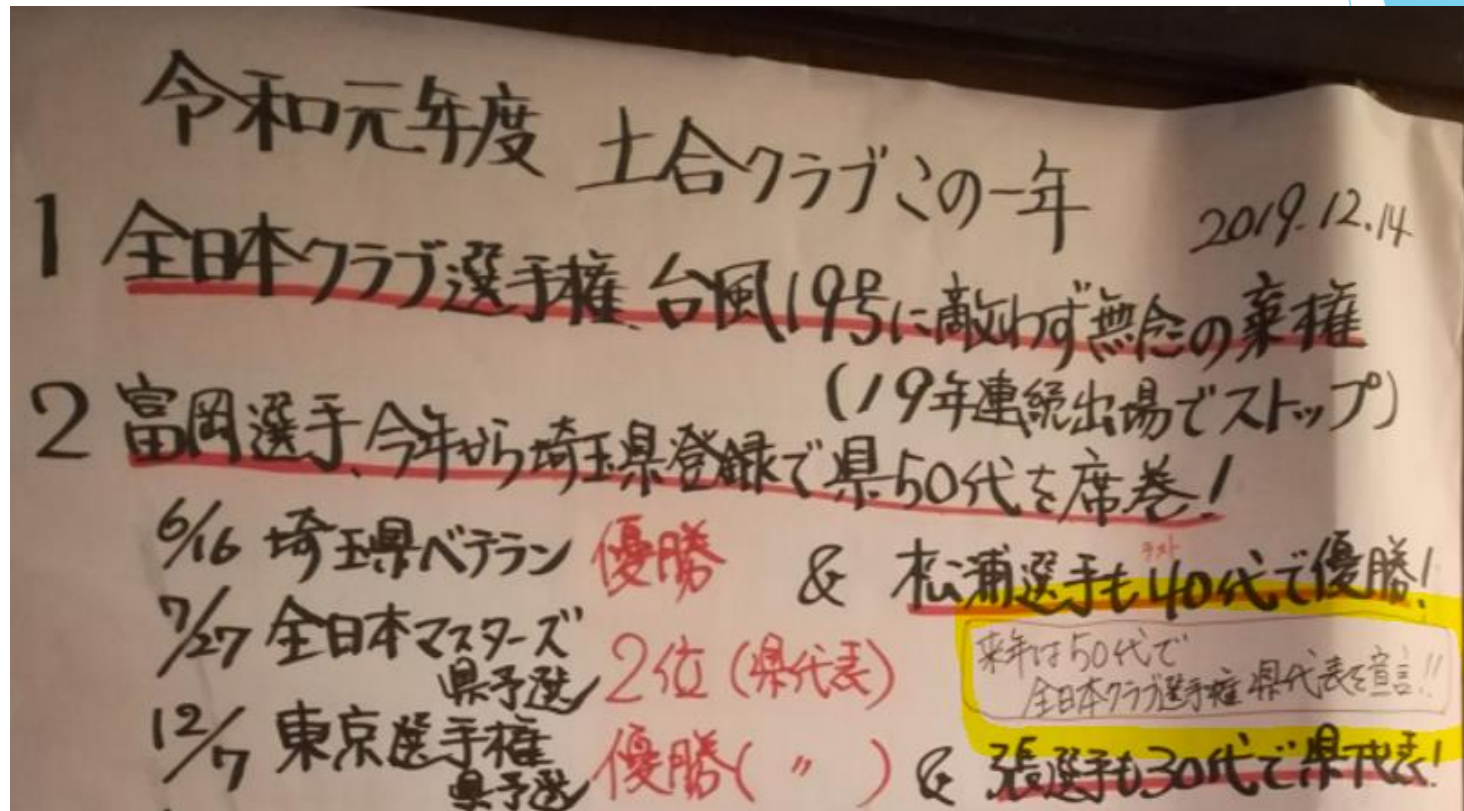 令和元年度 土合クラブこの一年
2019.12.14
1 全日本クラブ選手権、台風19号に敵わず無念の棄権
(19年連続出場でストップ)
2 富岡選手、今年から埼玉県登録で県50代を席巻!
6/16 埼玉県ベテラン 優勝 & 松浦選手も40代で優勝!
ラスト
7/27 全日本マスターズ 県予選 2位 (県代表)
来年は50代で
全日本クラブ選手権 県代表を宣言!!
12/7 東京選手権 県予選 優勝( 〃 ) & 張選手も30代で県代表!